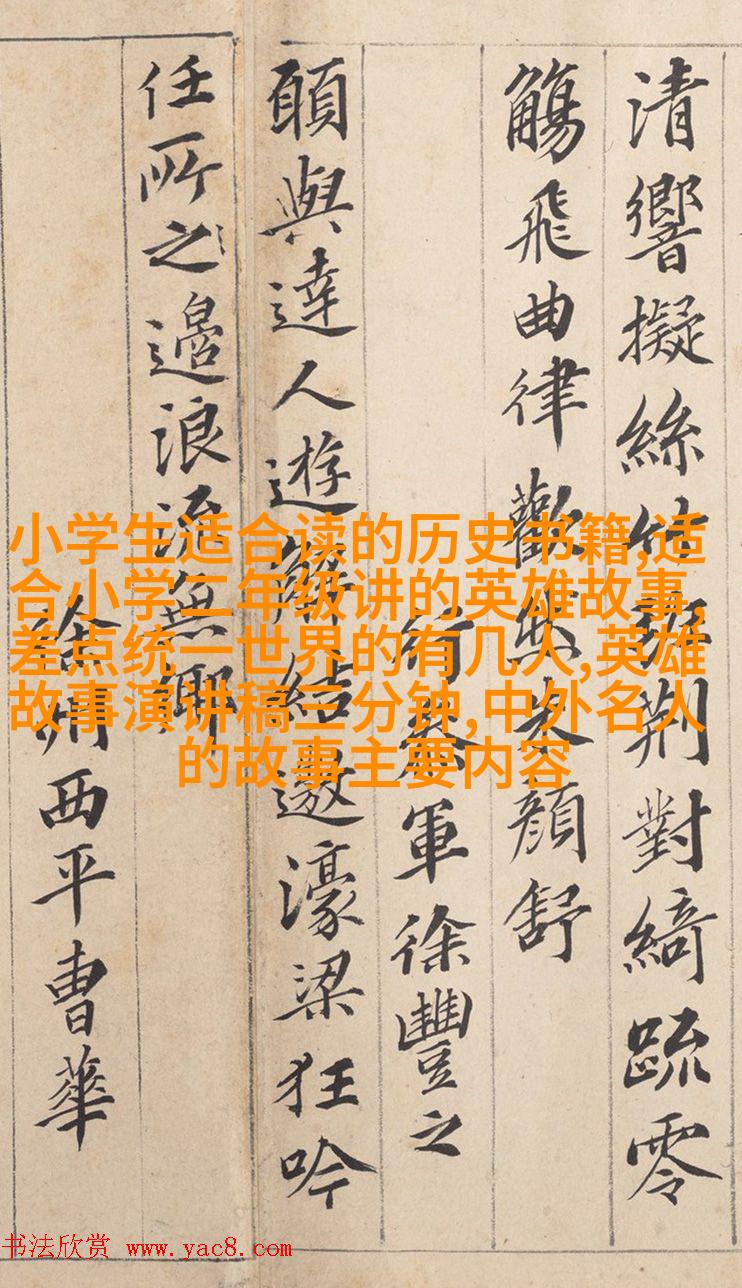 清響擬絲竹班荆對綺䟽零
觴飛曲律歡然朱顔舒
行叅軍徐豐之
願與達人遊解結遨濠梁狂吟
任所之邉浪流無鄉
徐州西平曹華
小学生适合读的历史书籍,适
合小学二年级讲的英雄故事,
差点统一世界的有几人,英雄
故事演讲稿三分钟,中外名人
的故事主要内容
书法欣赏 www.yac8.com